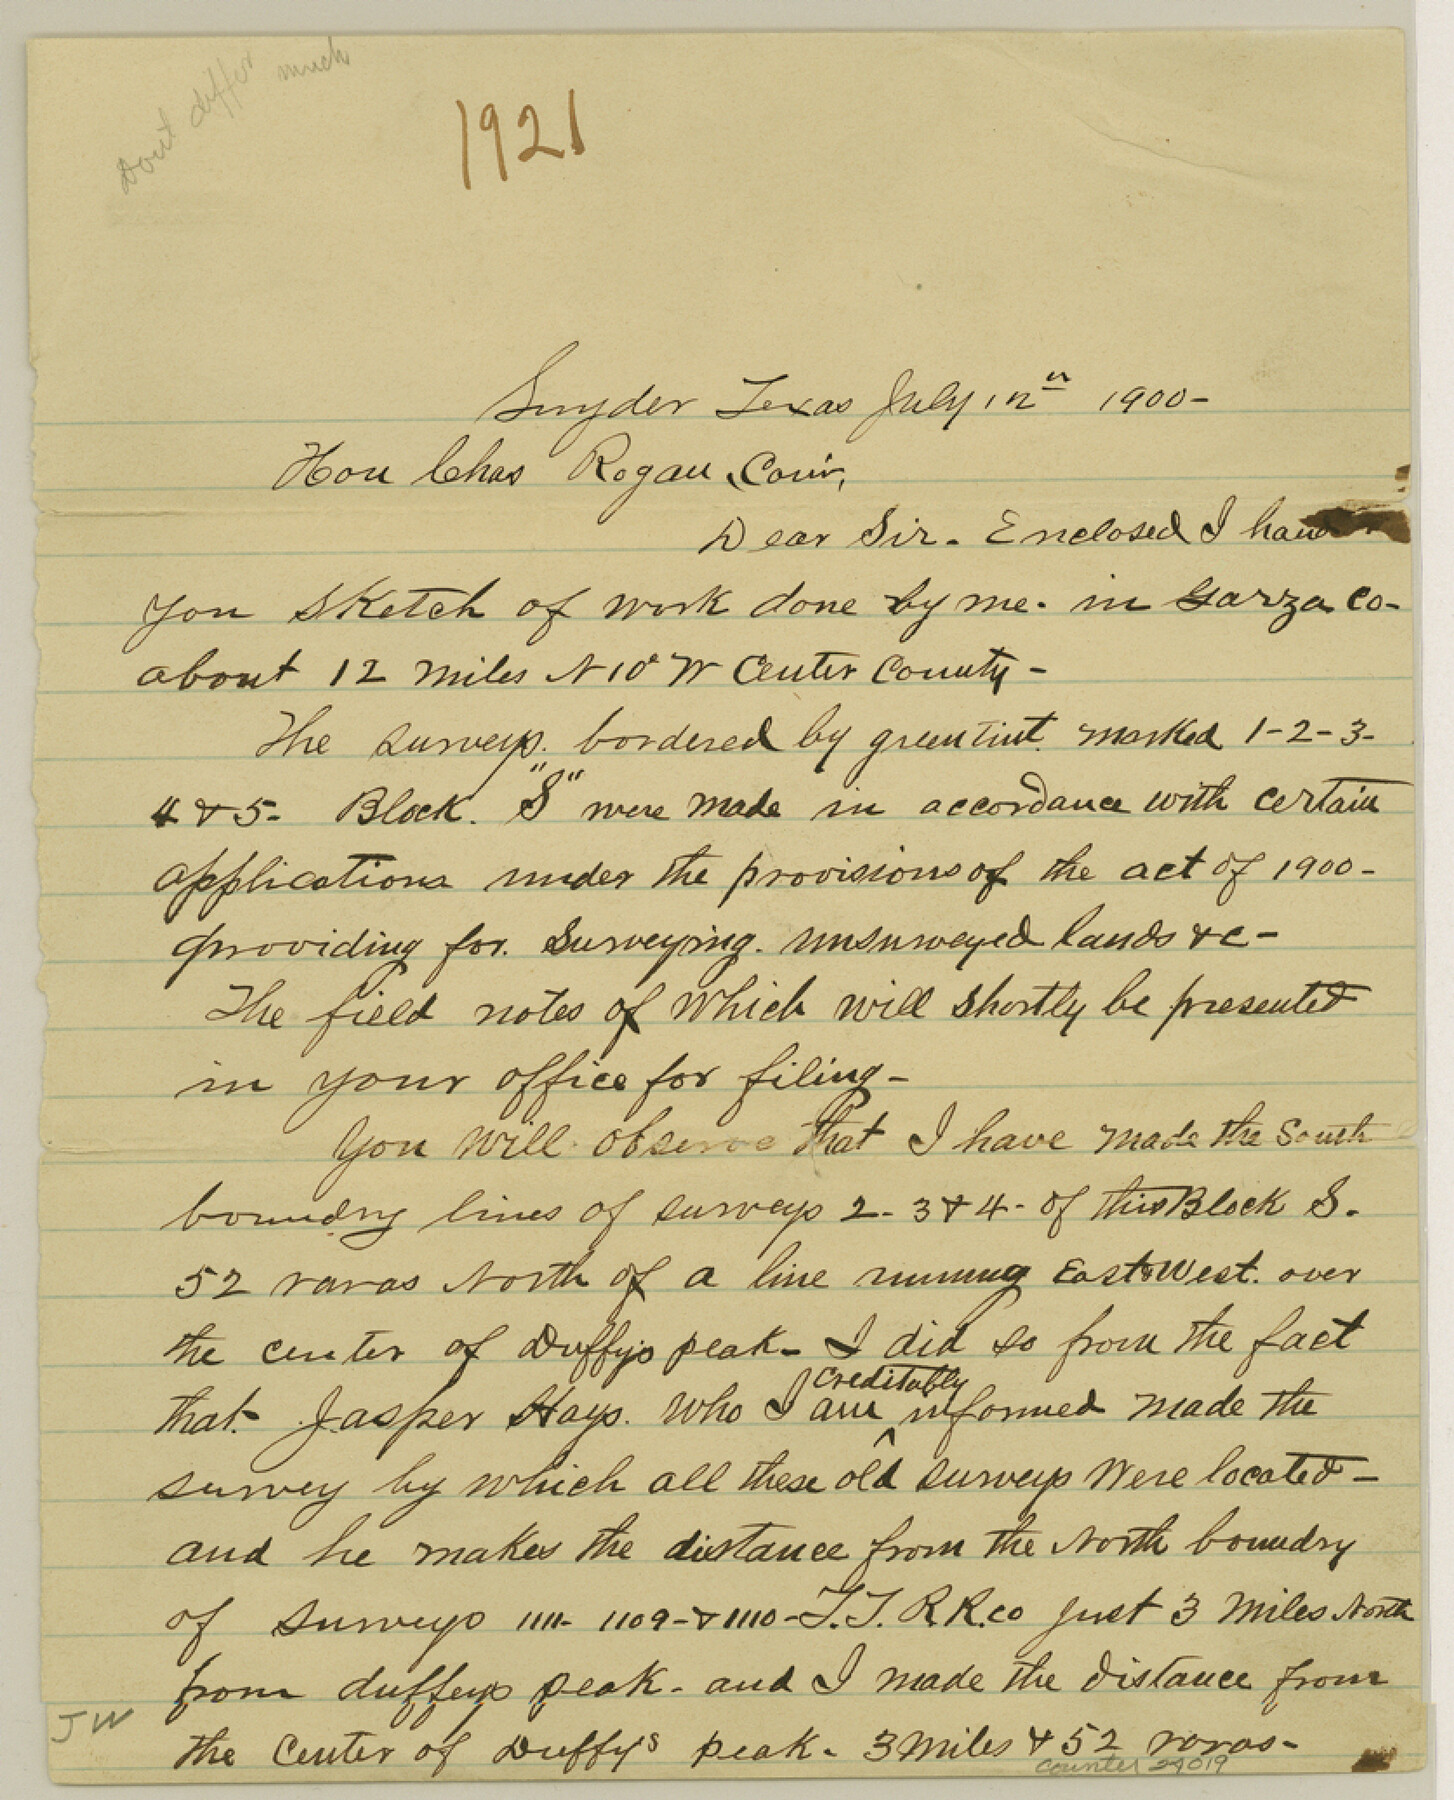 Dont differ much
1921
Snyder Texas July 12" 1900-
Hon Chas Rogan, Com'r,
Dear Sir. Enclosed I hand
you sketch of work done by me. in Garza Co-
about 12 miles N 10° W Center County-
The surveys. bordered by green tint. marked 1-2-3-
4 & 5- Block. "S" were made in accordance with certain
applications under the provisions of the act of 1900-
providing for. Surveying. unsurveyed lands &c-
The field notes of which will shortly be presented
in your office for filing-
You will observe that I have made the South
boundry lines of surveys 2- 3 & 4- of this Block S.
52 varas North of a line running East & West. over
the center of Duffy's peak- I did so from the fact
that. Jasper Hays. who I am creditably informed made the
survey by which all these old surveys were located-
and he makes the distance from the North boundry
of surveys 1111- 1109- & 1110- T.T. R.R.co just 3 miles North
from duffeys peak- and I made the distance from
the center of Duffy's peak- 3 miles & 52 varas-
JW
counter 24019